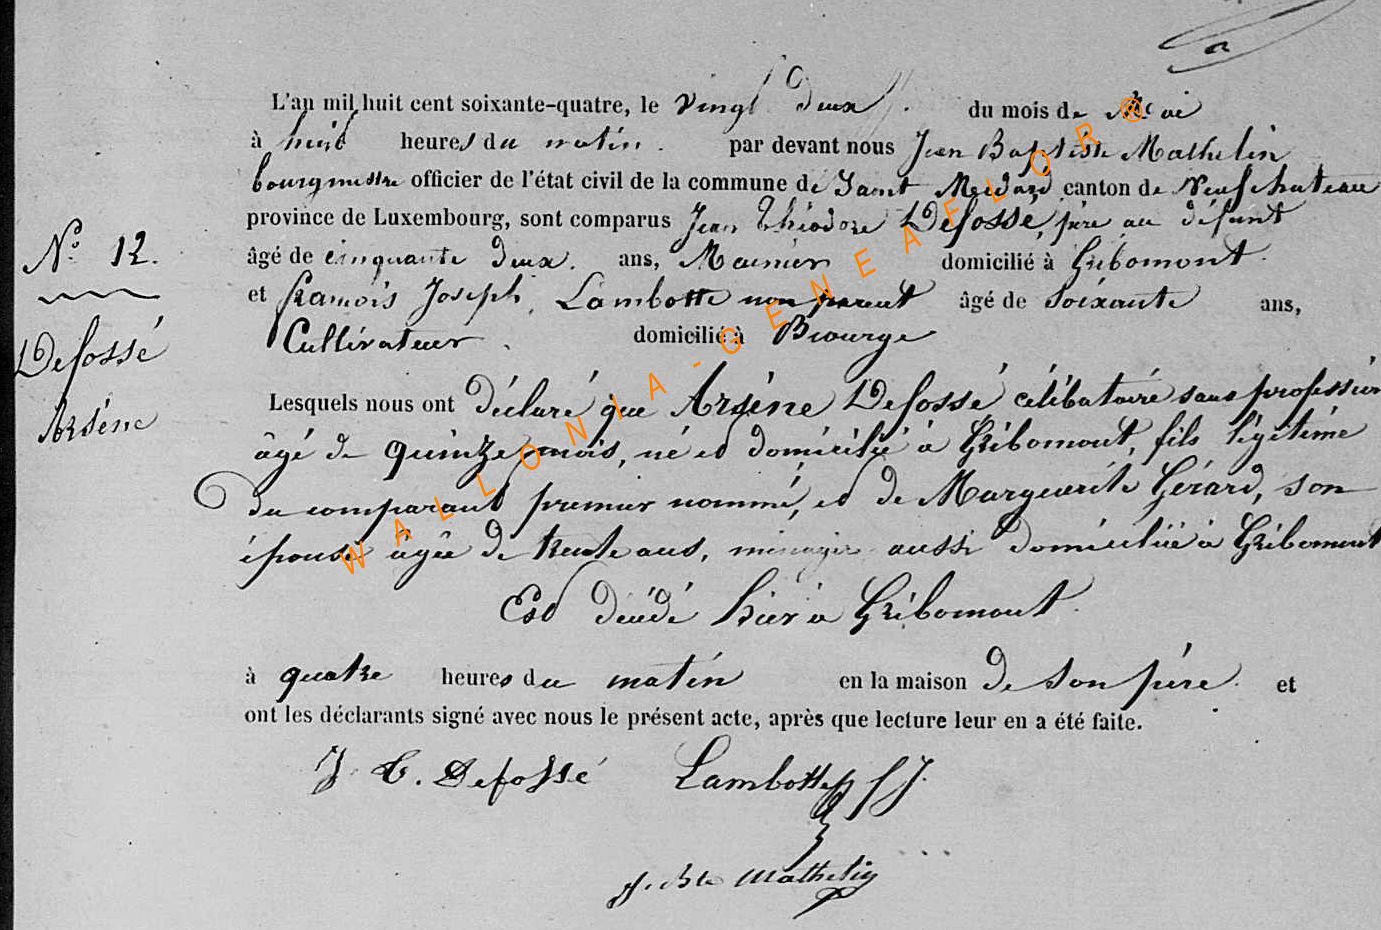 L'an mil huit cent soixante-quatre, le vingt deux du mois de Mai
à huit heures du matin. par devant nous Jean Baptiste Mathelin
bourgmestre officier de l'état civil de la commune de Saint Médard canton de Neufchateau
province de Luxembourg, sont comparus Jean Théodore Defossé, père au défunt
âgé de cinquante deux. ans, Meunier domicilié à Gribomont.
et François Joseph Lambotte non parent âgé de soixante ans,
Cultivateur. domicilié à Biourge
N.° 12.
Defossé
Arsène
Lesquels nous ont déclaré que Arsène Defossé célibataire sans profession
âgé de quinze mois, né et domicilié à Gribomont, fils légitime
du comparant premier nommé, et de Marguerite Gérard, son
épouse âgée de trente ans, ménagère aussi domiciliée à Gribomont
Est décédé hier à Gribomont.
à quatre heures du matin en la maison de son père. et
ont les déclarants signé avec nous le présent acte, après que lecture leur en a été faite.
J. T. Defossé Lambotte f J.
J. Bte Mathelin
WALLONIA-GENEAFLOR®